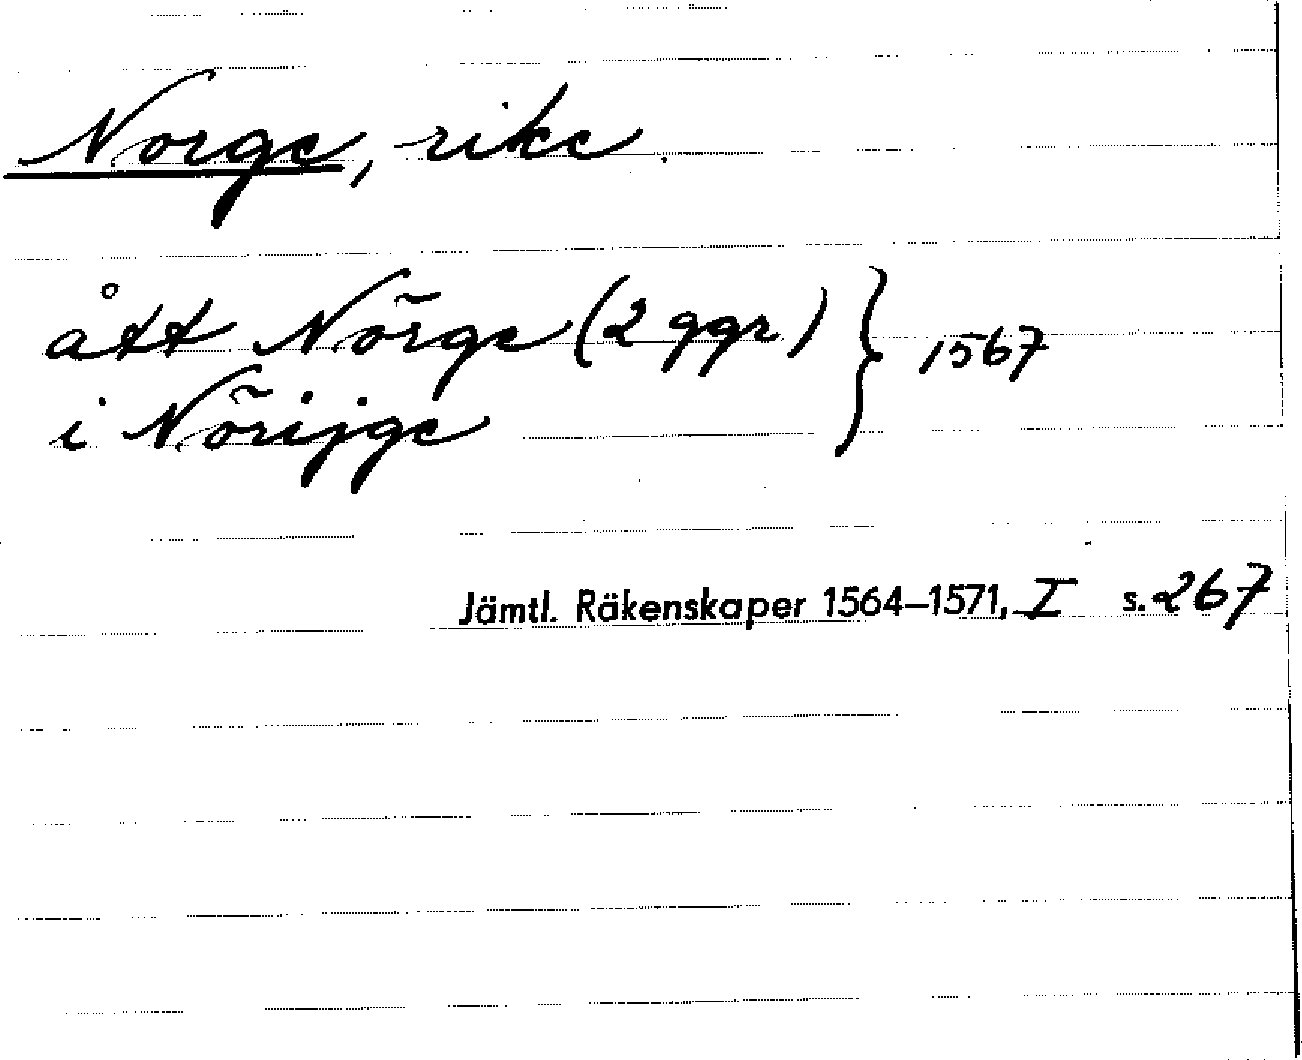 Norge, rike.
ått Nõrge (2 ggr) } 1567
i Nõrijge
Jämtl. Räkenskaper 1564–1571, I s. 267